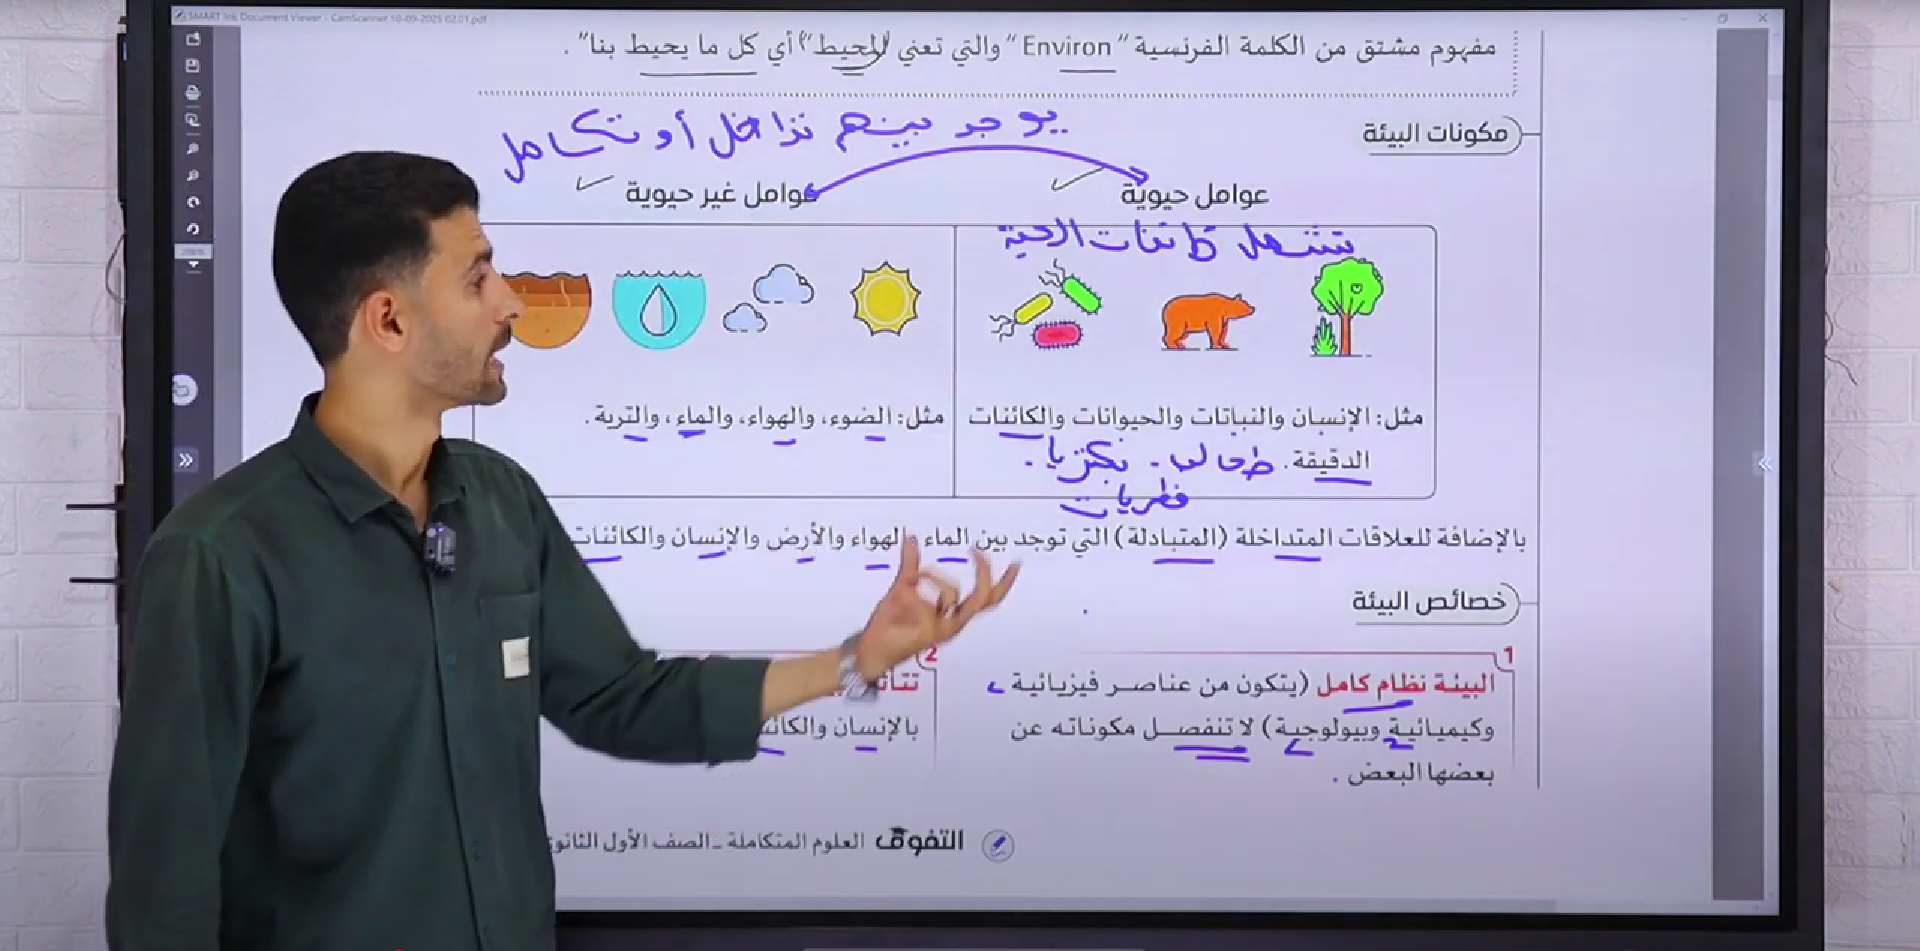 SMART Ink Document Viewer - CamScanner 10-09-2025 02.01.pdf
مفهوم مشتق من الكلمة الفرنسية "Environ" والتي تعني "المحيط" أي كل ما يحيط بنا".
مكونات البيئة
يوجد بينهم تداخل أو تكامل
عوامل حيوية
عوامل غير حيوية
تشمل كائنات الحية
مثل: الإنسان والنباتات والحيوانات والكائنات
الدقيقة.
طحالب. بكتريا.
فطريات
مثل: الضوء، والهواء، والماء، والتربة.
بالإضافة للعلاقات المتداخلة (المتبادلة) التي توجد بين الماء والهواء والأرض والإنسان والكائنات
خصائص البيئة
1
البيئة نظام كامل (يتكون من عناصر فيزيائية
وكيميائية وبيولوجية) لا تنفصل مكوناته عن
بعضها البعض.
2
بالإنسان
التفوق العلوم المتكاملة - الصف الأول الثانوي